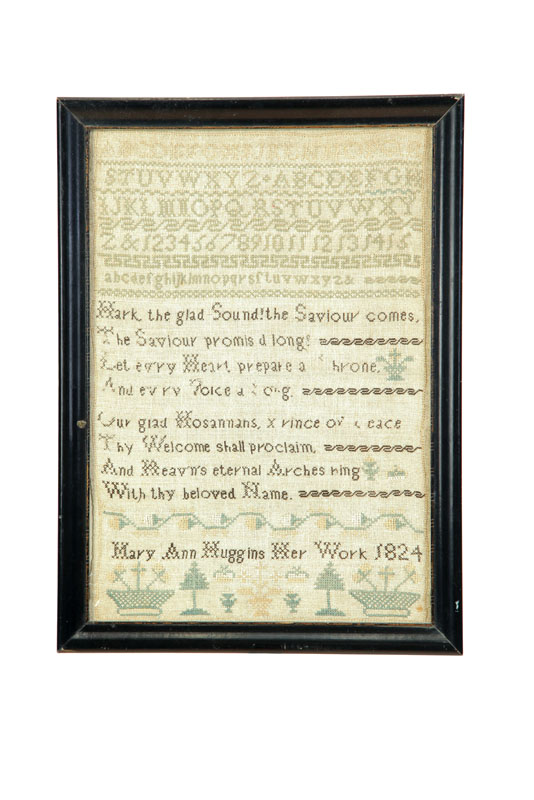 STUVWXYZ ABCDEFGH
IJKLMNOPQRSTUVWXY
Z & 12345678910111213141516
abcdefghijklmnopqrsſtuvwxyz&
Hark the glad Sound! the Saviour comes,
The Saviour promis d long!
Let every Heart prepare a hrone,
And every Voice a Song,
Our glad Hosannans, rince of eace
Thy Welcome shall proclaim,
And Heavn's eternal Arches ring
With thy beloved Name.
Mary Ann Huggins Her Work 1824